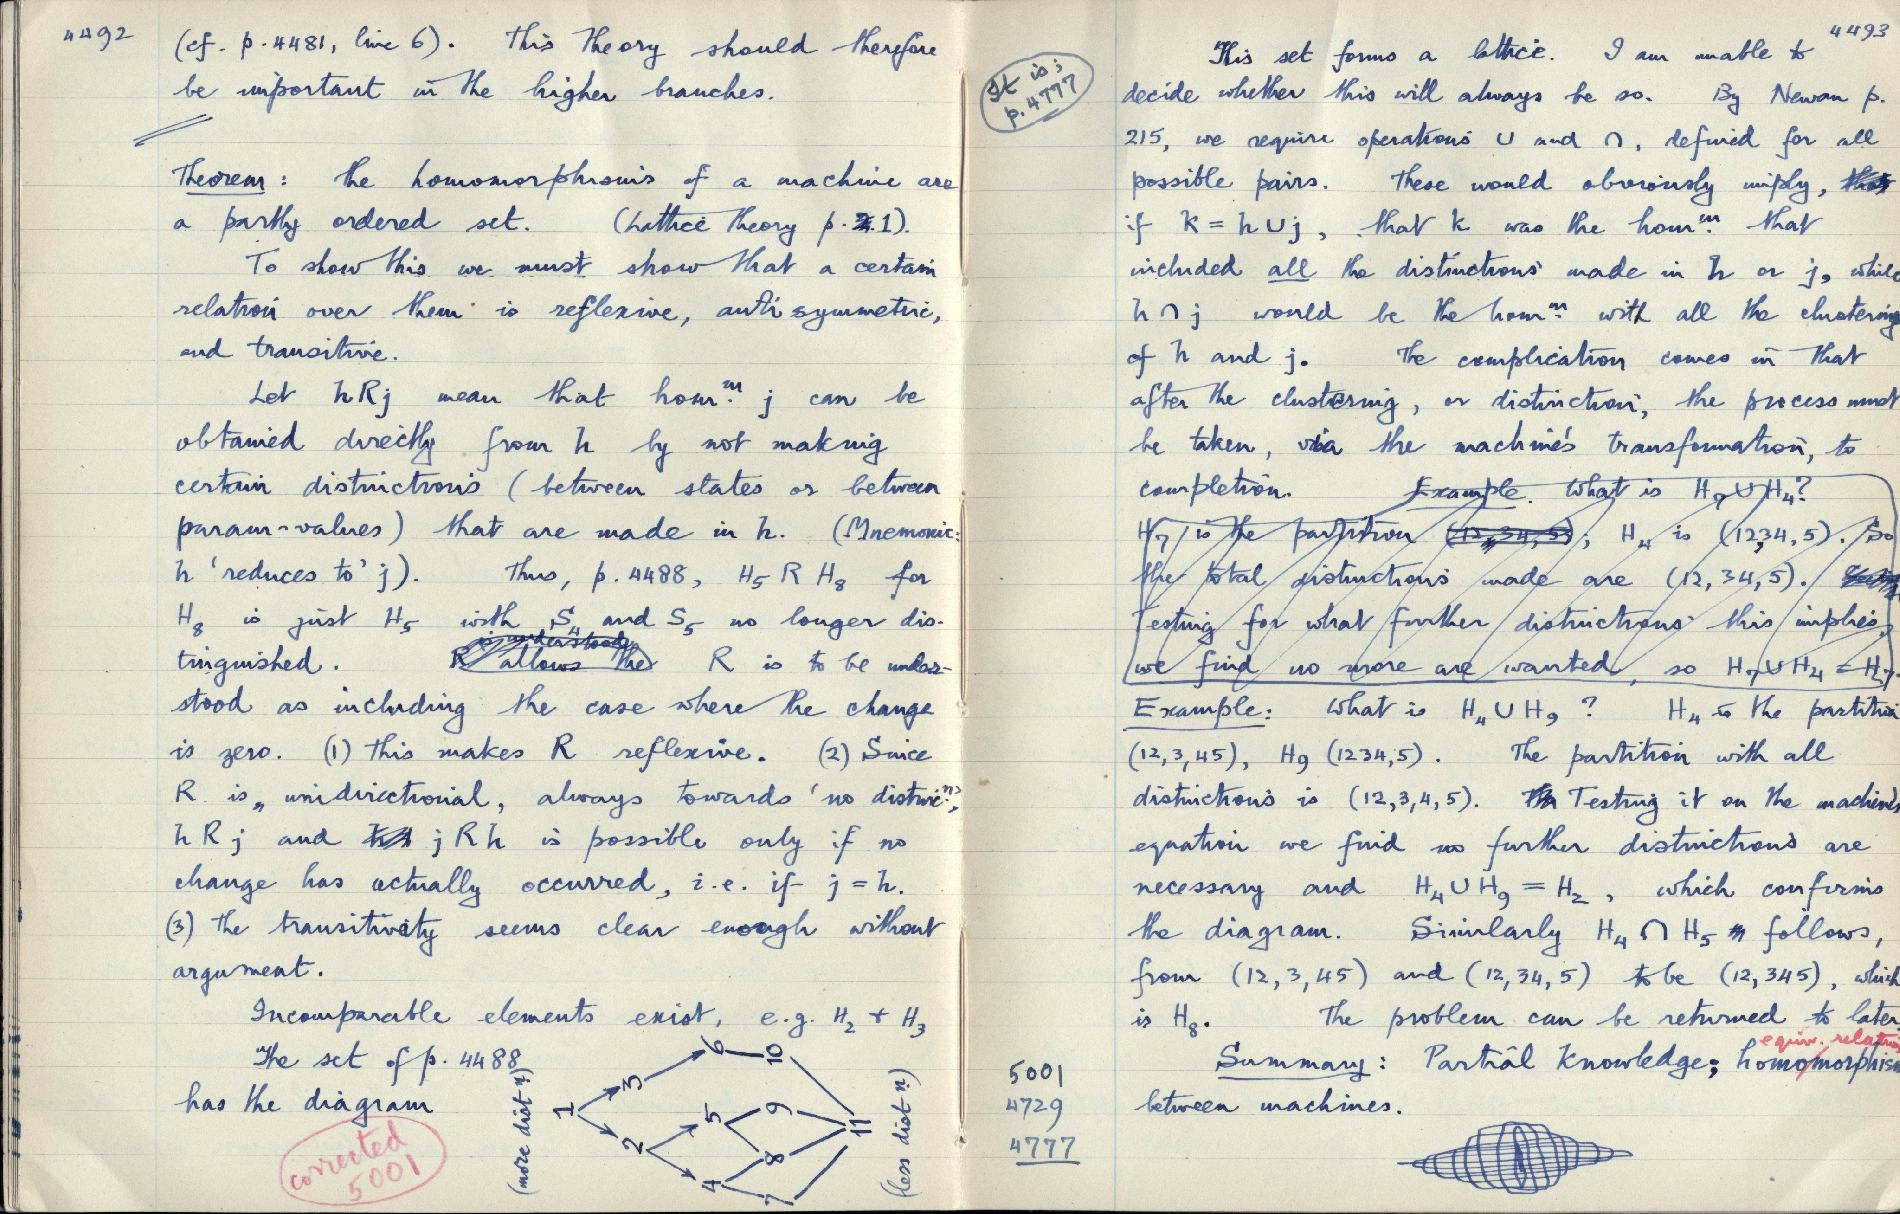 4492
(cf. p. 4481, line 6). This theory should therefore
be important in the higher branches.
Theorem: The homomorphisms of a machine are
a partly ordered set. (Lattice Theory p. 1).
To show this we must show that a certain
relation over them is reflexive, antisymmetric,
and transitive.
Let h R j mean that homᵐ. j can be
obtained directly from h by not making
certain distinctions (between states or between
param-values) that are made in h. (Mnemonic:
h 'reduces to' j). Thus, p. 4488, H₅ R H₈ for
H₈ is just H₅ with S₄ and S₅ no longer dis-
is understood
tinguished. R allows the R is to be under-
stood as including the case where the change
is zero. (1) This makes R reflexive. (2) Since
R is unidirectional, always towards 'no distincⁿˢ',
h R j and j R h is possible only if no
change has actually occurred, i.e. if j = h.
(3) The transitivity seems clear enough without
argument.
Incomparable elements exist, e.g. H₂ + H₃
The set of p. 4488
has the diagram
corrected
5001
(more distⁿ)
1
2
3
4
5
6
7
8
9
10
11
(less distⁿ)
4493
It is;
p. 4777
This set forms a lattice. I am unable to
decide whether this will always be so. By Newman p.
215, we require operations ∪ and ∩, defined for all
possible pairs. These would obviously imply, that
if k = h ∪ j, that k was the homᵐ. that
included all the distinctions made in h or j, while
h ∩ j would be the homᵐ. with all the clusterings
of h and j. The complication comes in that
after the clustering, or distinction, the process must
be taken, via the machine's transformation, to
completion. Example. What is H₇ ∪ H₄?
H₇ is the partition (12,34,5); H₄ is (1234,5). So
the total distinctions made are (12,34,5).
Testing for what further distinctions this implies,
we find no more are wanted, so H₇ ∪ H₄ = H₇.
Example: What is H₄ ∪ H₉? H₄ is the partition
(12,3,45), H₉ (1234,5). The partition with all
distinctions is (12,3,4,5). Testing it on the machine's
equation we find no further distinctions are
necessary and H₄ ∪ H₉ = H₂, which confirms
the diagram. Similarly H₄ ∩ H₅ follows,
from (12,3,45) and (12,34,5) to be (12,345), which
is H₈. The problem can be returned to later
equiv. relation
Summary: Partial Knowledge; homomorphism
between machines.
5001
4729
4777